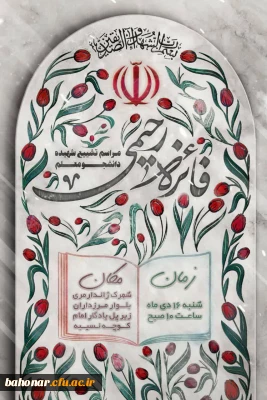 بسم رب الشهداء و الصدیقین
مراسم تشییع شهیده
دانشجو معلم
فائزه رحیمی
زمان
شنبه ۱۶ دی ماه
ساعت ۱۰ صبح
مکان
شهرک ژاندارمری
بلوار مرزداران
زیر پل یادگار امام
کوچه نسیبه
bahonar.cfu.ac.ir